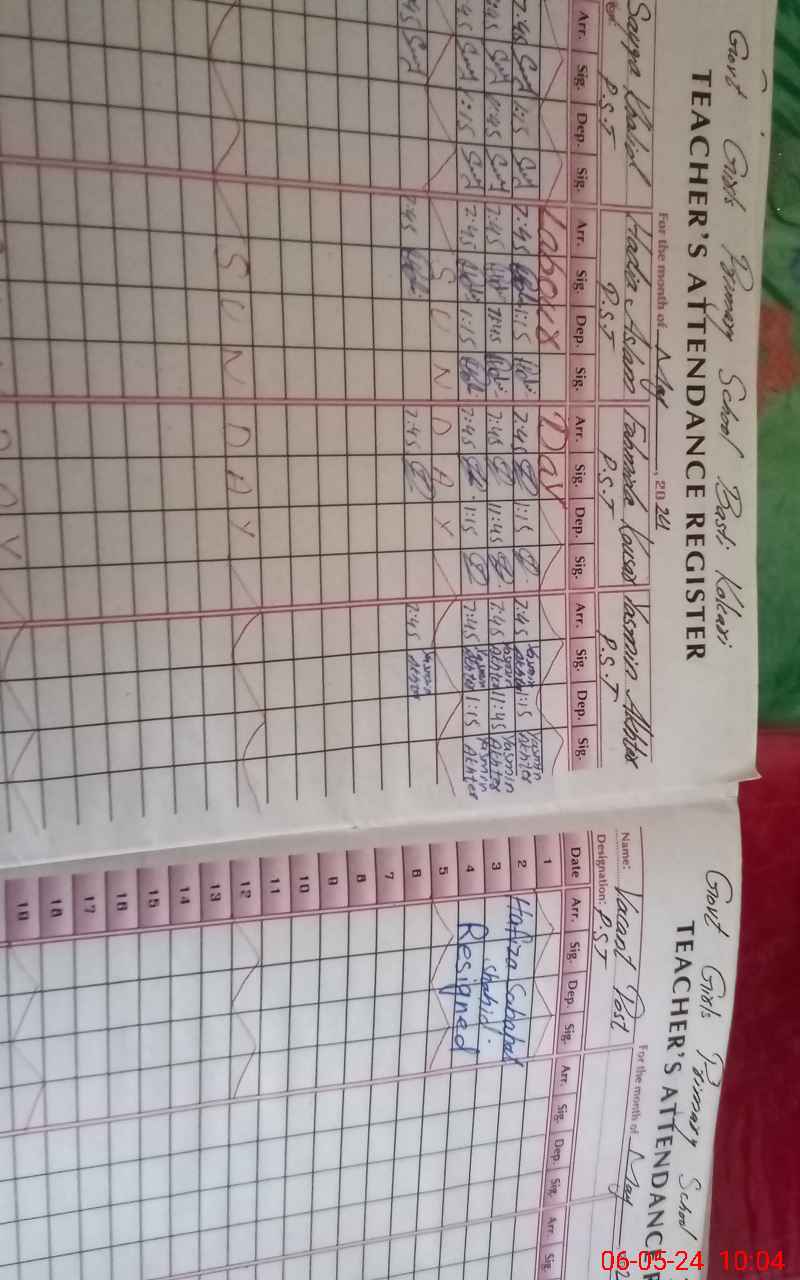 Govt Girls Primary School Basti Kolcari
TEACHER'S ATTENDANCE REGISTER
For the month of May, 2024
Khalid Hadia Aslam Fahmida Kousar Yasmin Akhter
P.S.T P.S.T P.S.T P.S.T
Arr. Sig. Dep. Sig. Arr. Sig. Dep. Sig. Arr. Sig. Dep. Sig. Arr. Sig. Dep. Sig.
Labour Day
7:45 1:15 7:45 1:15 7:45 1:15 7:45 Yasmin Akhter 1:15 Yasmin Akhter
7:45 11:45 7:45 11:45 7:45 Yasmin Akhter 11:45 Yasmin Akhter
7:45 1:15 7:45 1:15 7:45 1:15 7:45 Yasmin Akhter 1:15 Yasmin Akhter
S U N D A Y
7:45 7:45 7:45 7:45 Yasmin Akhter
S U N D A Y
D A Y
Govt Girls Primary School
TEACHER'S ATTENDANCE
For the month of May
Name: Vacant Post
Designation: P.S.T
Date Arr. Sig. Dep. Sig. Arr. Sig. Dep. Sig. Arr. Sig.
1
2 Hafiza
3 Shahid
4 Resigned
5
6
7
8
9
10
11
12
13
14
15
16
17
18
19
06-05-24 10:04